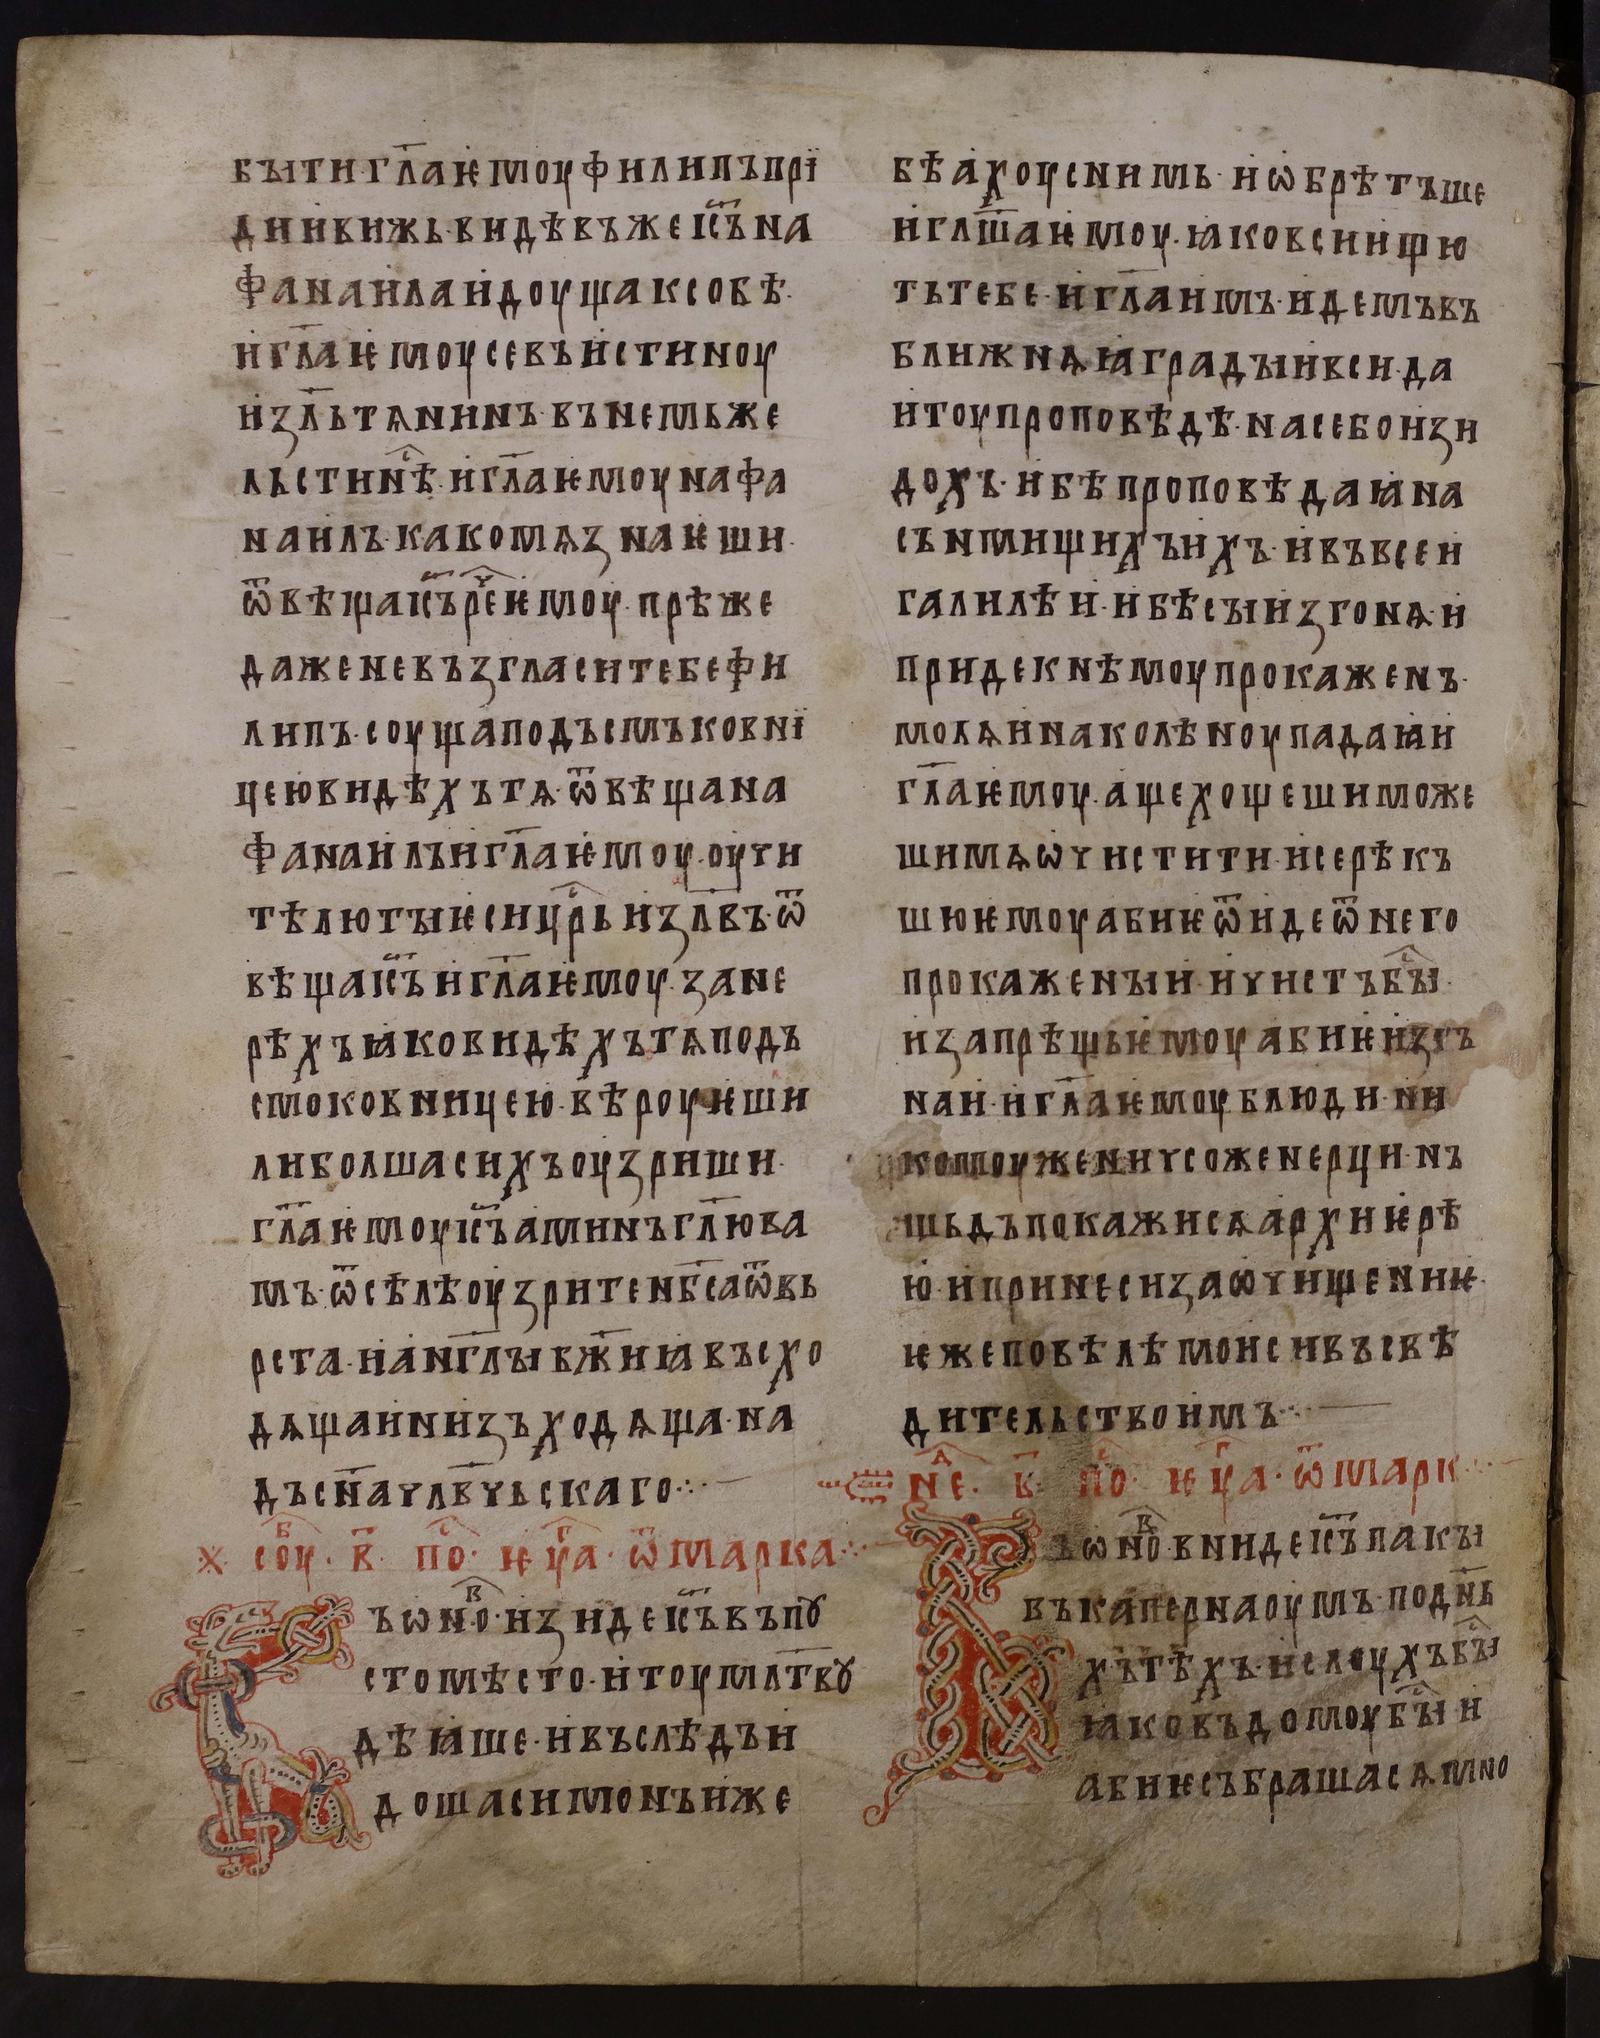 бꙑти·гл҃а ѥмоу филипъ при
ди и вижь· видѣвъ же іс҃ъ на
фанаила идоуща к собѣ·
и гл҃а ѥмоу се въ истиноу
из҃льтѧнинъ· въ немьже
льсти нѣ҇· и гл҃а ѥмоу нафа
наилъ· како мѧ знаѥши·
ѿвѣща іс҃ъ реⷱ҇ ѥмоу· прѣже
даже не възгласи тебе фи
липъ· соуща подъ смъковні
цею видѣхъ тѧ· ѿвѣща на
фанаилъ и гл҃а ѥмоу· оучи
тѣлю тꙑ ѥси цр҇ь из҃лвъ· ѿ
вѣща іс҃ъ и гл҃а ѥмоу· зане
рѣхъ ꙗко видѣхъ тѧ подъ
смоковницею· вѣроуѥши
ли болша сихъ оузриши·
гл҃а ѥмоу іс҃ъ аминъ гл҃ю ва
мъ· ѿсѣлѣ оузрите нб҃са ѿвь
рста· и анг҃лꙑ бж҃иꙗ въсхо
дѧща и низъходѧща· на
дъ сн҃а чл҃вчьскаго·:·
соуⷠ҇· в҃· поⷭ҇· ѥуⷢ҇а· ѿ марка·:·
ъ ѡноⷡ҇· изиде іс҃ъ въ пꙋ
сто мѣсто· и тоу мл҃твꙋ
дѣꙗше· и въслѣдъ и
доша симонъ и же
бѣахоу с нимь· и ѡбрѣтъше
и гл҃ша ѥмоу· ꙗко вси ищю
ть тебе· и гл҃а имъ· идемъ въ
ближнѧꙗ градꙑ и вси· да
и тоу проповѣдѣ· на се бо изи
дохъ· и бѣ проповѣдаꙗ на
сънмищихъ ихъ· и въ всеи
галилѣи· и бѣсꙑ изгонѧ· и
приде к нѣмоу прокаженъ·
молѧ и на колѣноу падаꙗ и
гл҃а ѥмоу· аще хощеши може
ши мѧ ѡчистити· и се рѣкъ
шю ѥмоу абиѥ ѿиде ѿ него
прокаженꙑи· и чистъ бꙑⷭ҇·
и запрѣщь ѥмоу абиѥ изгъ
на и· и гл҃а ѥмоу блюди· ни
комоу же ничсоже не рци· нъ
шьдъ покажи сѧ архиѥрѣ
ю· и принеси за ѡчищениѥ·
ѥже повѣлѣ моиси въ свѣ
дительство имъ·:·
неⷣ҇· в҃· поⷭ҇· ѥуⷢ҇а· ѿ марк·:·
ъ ѡноⷡ҇· вниде іс҃ъ пакꙑ
въ капернаоумъ· по дн҃ь
хъ тѣхъ· и слоухъ бꙑⷭ҇
ꙗко въ домоу бꙑⷭ҇ и
абиѥ събраша сѧ мно